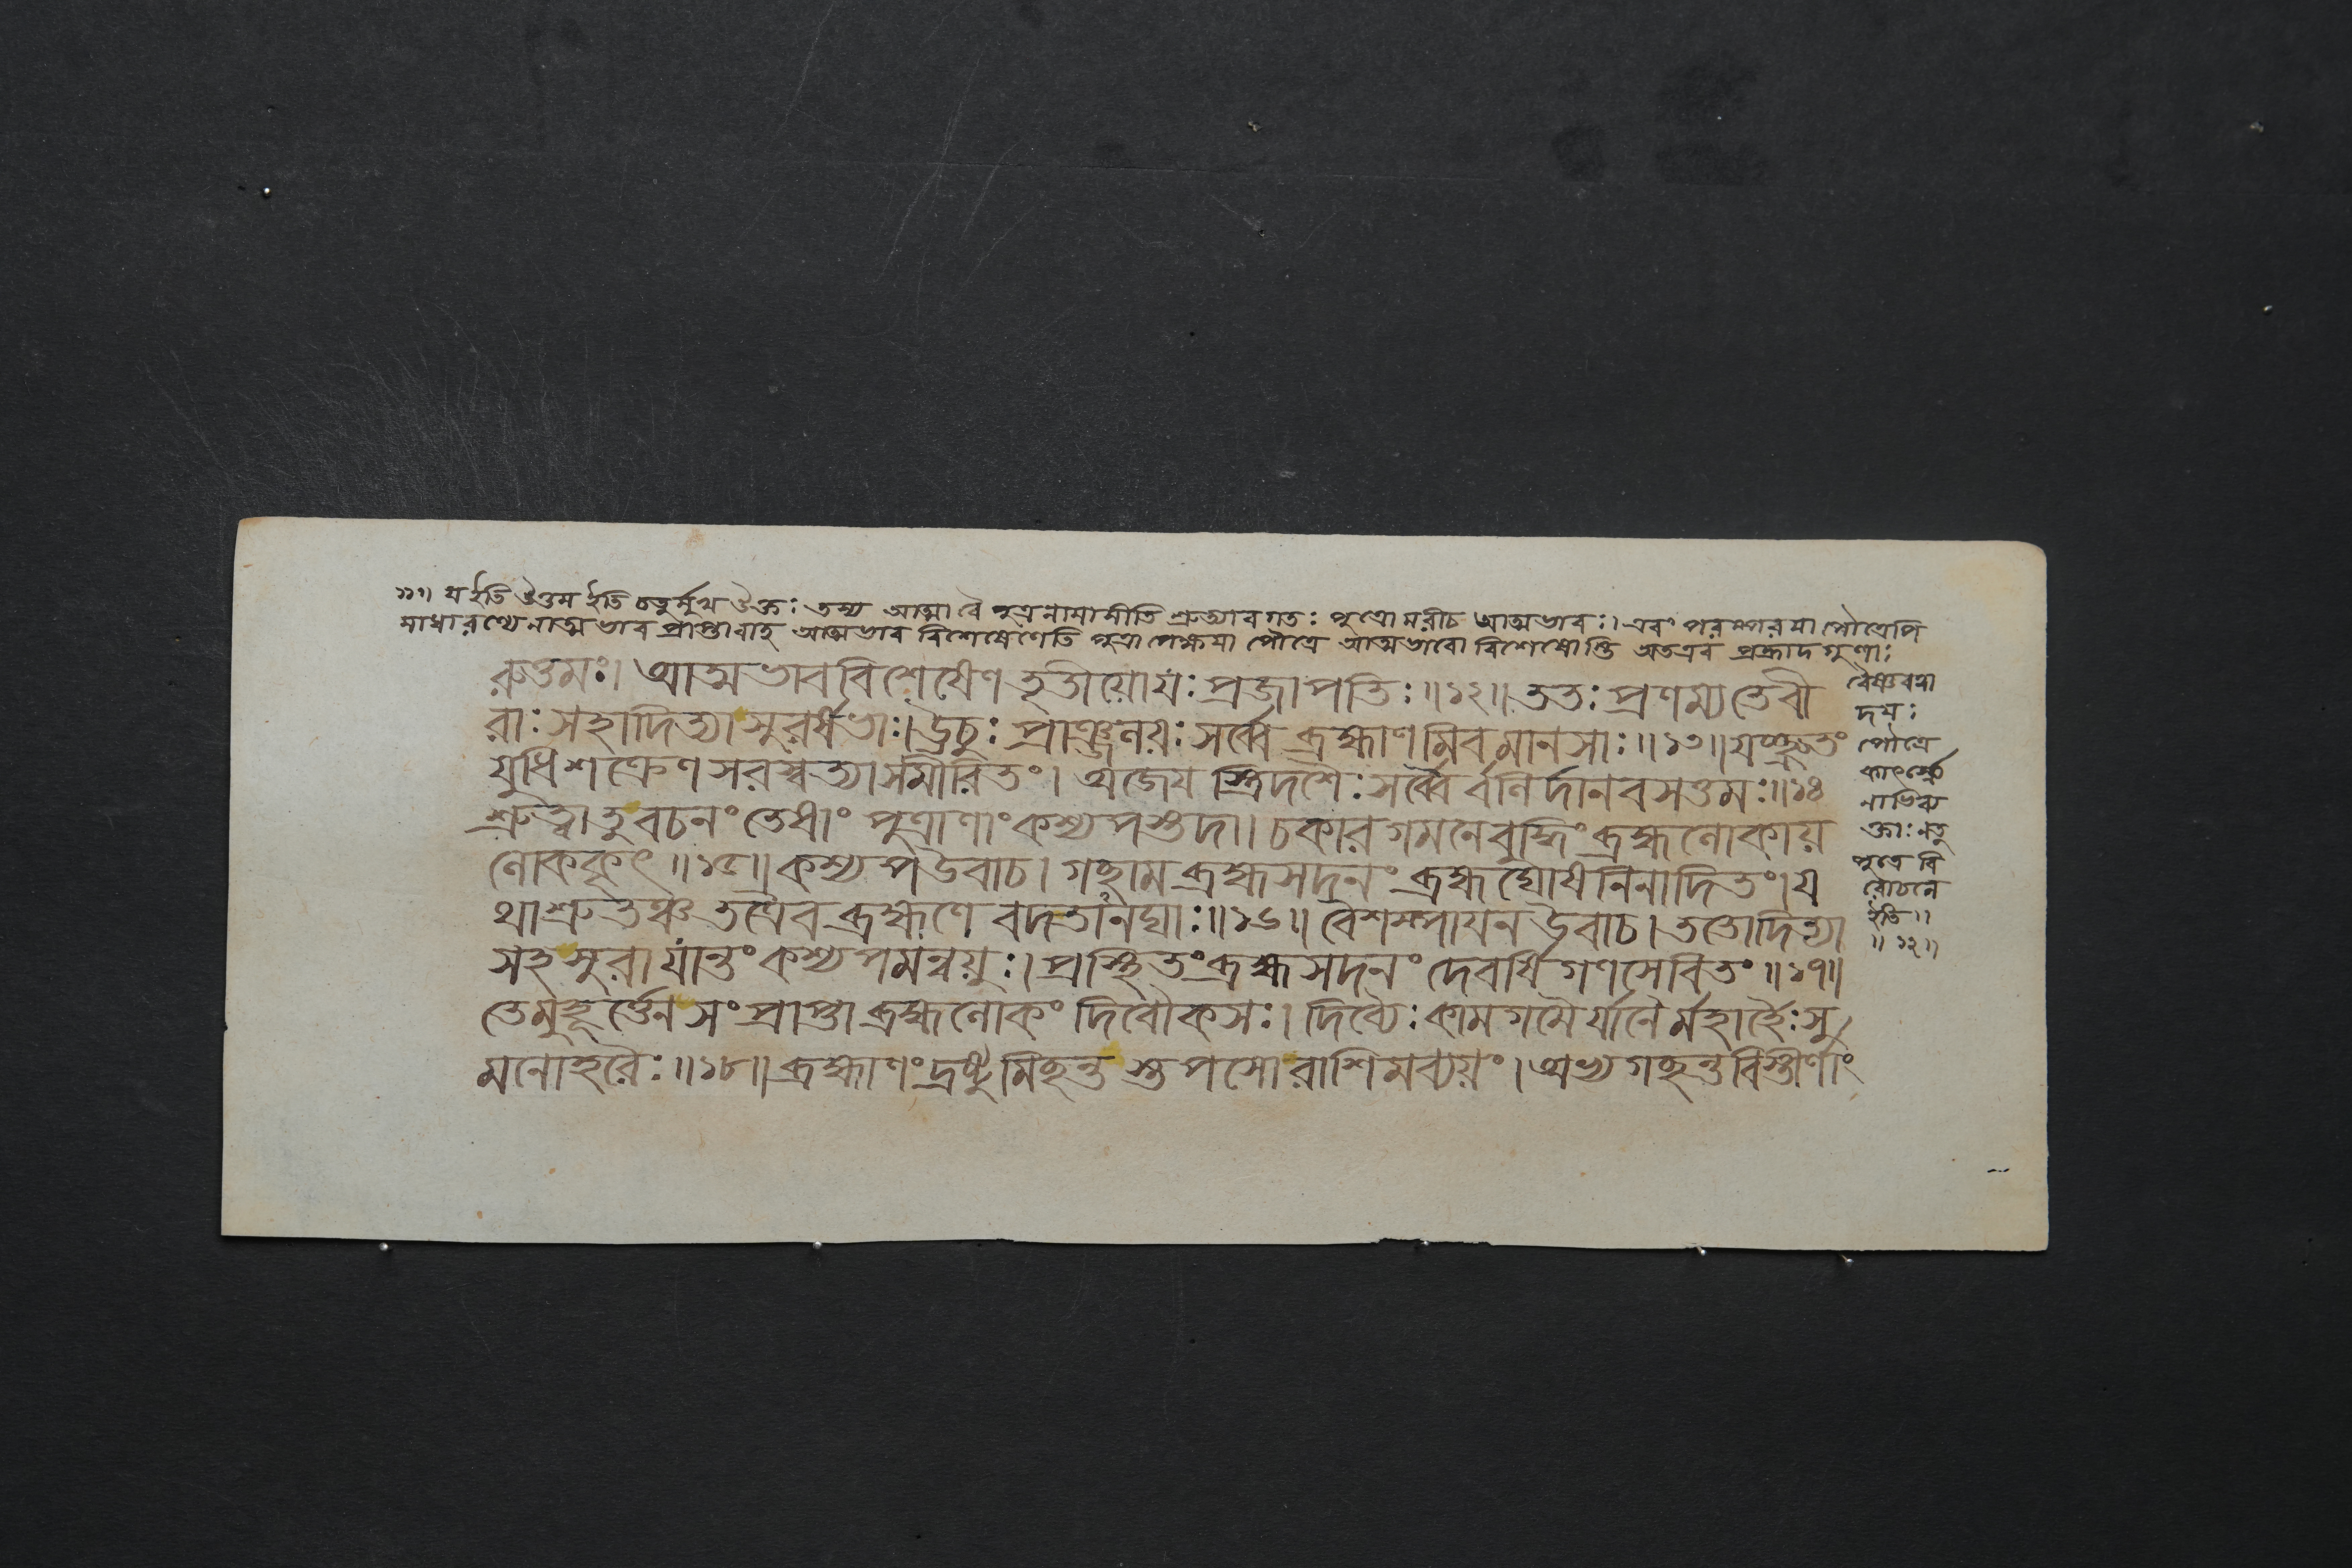 ১১॥ যইতি ঔত্তম ইতি চতুর্মুখ ঔক্তঃ তস্য আত্মা বৈ পুত্রনামাসীতি শ্রুত্যাবগতঃ পুত্রো মরীচ আত্মভাবঃ। এবং পরম্পরয়া পৌত্রেপি
সাধারণ্যেনাত্মভাব প্রাপ্তাবাহ আত্মভাব বিশেষেণেতি পুত্রাপেক্ষয়া পৌত্রে আত্মভাবো বিশেষোস্তি অতএব প্রহ্লাদগুণাঃ
রুত্তমঃ। আত্মভাববিশেষেণ তৃতীয়োয়ং প্রজাপতিঃ॥১২॥ ততঃ প্রণম্য তে বী
রাঃ সহাদিত্যাসুরর্ষভাঃ। ঊচুঃ প্রাঞ্জলয়ঃ সর্ব্বে ব্রহ্মাণমিবমানসাঃ॥১৩॥ যচ্ছ্রুতং
যুধি শক্রেণ সরস্বত্যা সমীরিতং। অজেয় স্ত্রিদশৈঃ সর্ব্বৈর্বলির্দানবসত্তমঃ॥১৪
শ্রুত্বা তু বচনং তেষাং পুত্রাণাং কশ্যপস্তদা। চকার গমনে বুদ্ধিং ব্রহ্মলোকায়
লোককৃৎ॥১৫॥ কশ্যপ উবাচ। গচ্ছাম ব্রহ্মসদনং ব্রহ্মঘোষনিনাদিতং। য
থাশ্রুতঞ্চ তত্রৈব ব্রহ্মণে বদতানঘাঃ॥১৬॥ বৈশম্পায়ন উবাচ। ততোদিত্যা
সহ সুরা যান্তং কশ্যপমন্বয়ুঃ। প্রস্থিতং ব্রহ্মসদনং দেবর্ষিগণসেবিতং॥১৭॥
তে মুহূর্ত্তেন সংপ্রাপ্তা ব্রহ্মলোকং দিবৌকসঃ। দিব্যৈঃ কামগমৈর্যানৈর্মহার্হৈঃ সু
মনোহরৈঃ॥১৮॥ ব্রহ্মাণং দ্রষ্টুমিচ্ছন্ত স্তপসো রাশিমব্যয়ং। অভ্যগচ্ছন্ত বিস্তীর্ণাং
বৈষ্ণবত্বা
দয়ঃ
পৌত্রে
কার্ৎস্ন্যে
নাভিব্য
ক্তাঃ নতু
পুত্রে বি
রোচনে
ইতি॥
॥১২॥